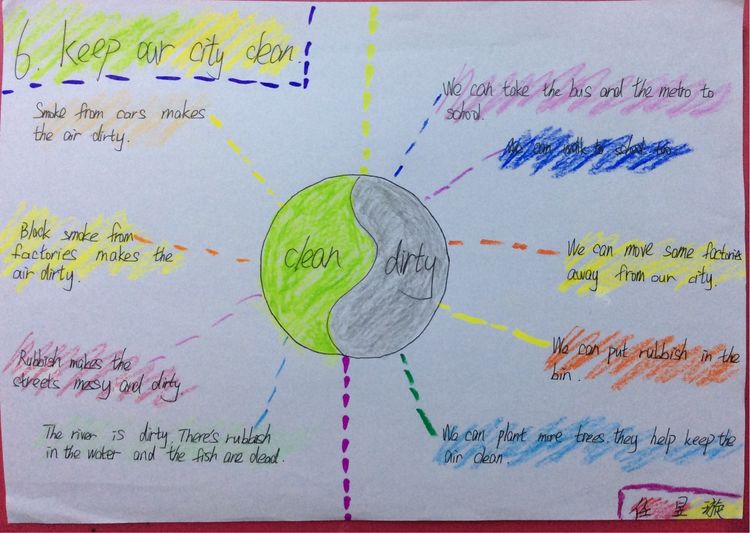 6. Keep our city clean.
Smoke from cars makes
the air dirty.
Black smoke from
factories makes the
air dirty.
Rubbish makes the
streets messy and dirty
The river is dirty. There's rubbish
in the water and the fish are dead.
clean
dirty
We can take the bus and the metro to
school.
We can walk to school too.
We can move some factories
away from our city.
We can put rubbish in the
bin.
We can plant more trees. they help keep the
air clean.
任星璇